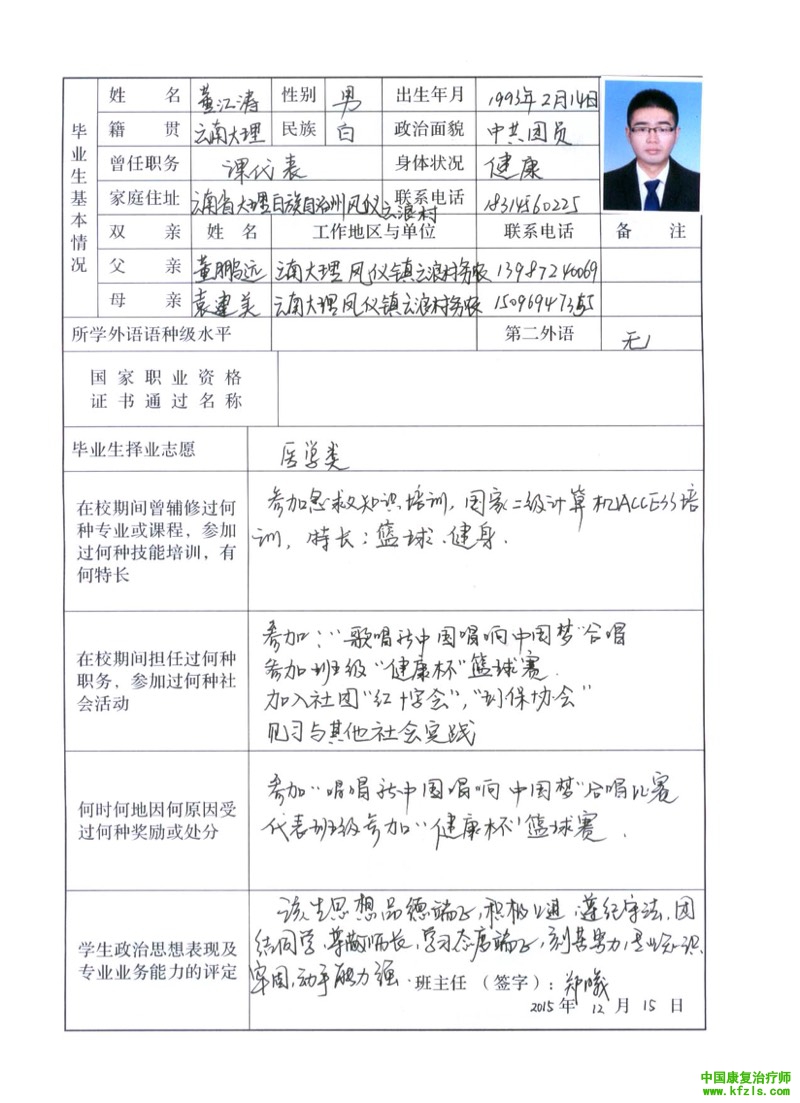 毕业生基本情况
姓名 董江涛 性别 男 出生年月 1993年2月14日
籍贯 云南大理 民族 白 政治面貌 中共团员
曾任职务 课代表 身体状况 健康
家庭住址 云南省大理白族自治州凤仪云浪村 联系电话 18314560225
双亲 姓名 工作地区与单位 联系电话 备注
父亲 董鹏远 云南大理凤仪镇云浪村务农 13987240069
母亲 袁建美 云南大理凤仪镇云浪村务农 15096947355
所学外语语种级水平 第二外语 无
国家职业资格
证书通过名称
毕业生择业志愿 医学类
在校期间曾辅修过何
种专业或课程，参加
过何种技能培训，有
何特长
参加急救知识培训，国家二级计算机ACCESS培
训，特长：篮球、健身.
在校期间担任过何种
职务，参加过何种社
会活动
参加："歌唱新中国唱响中国梦"合唱
参加班级"健康杯"篮球赛.
加入社团"红十字会"，"协会"
见习与其他社会实践
何时何地因何原因受
过何种奖励或处分
参加"唱唱新中国唱响中国梦"合唱比赛
代表班级参加"健康杯"篮球赛.
学生政治思想表现及
专业业务能力的评定
该生思想品德端正，积极上进，遵纪守法，团
结同学，尊敬师长，学习态度端正，刻苦努力，专业知识
牢固，动手能力强.班主任（签字）：郑曦
2015年12月15日
中国康复治疗师
www.kfzls.com